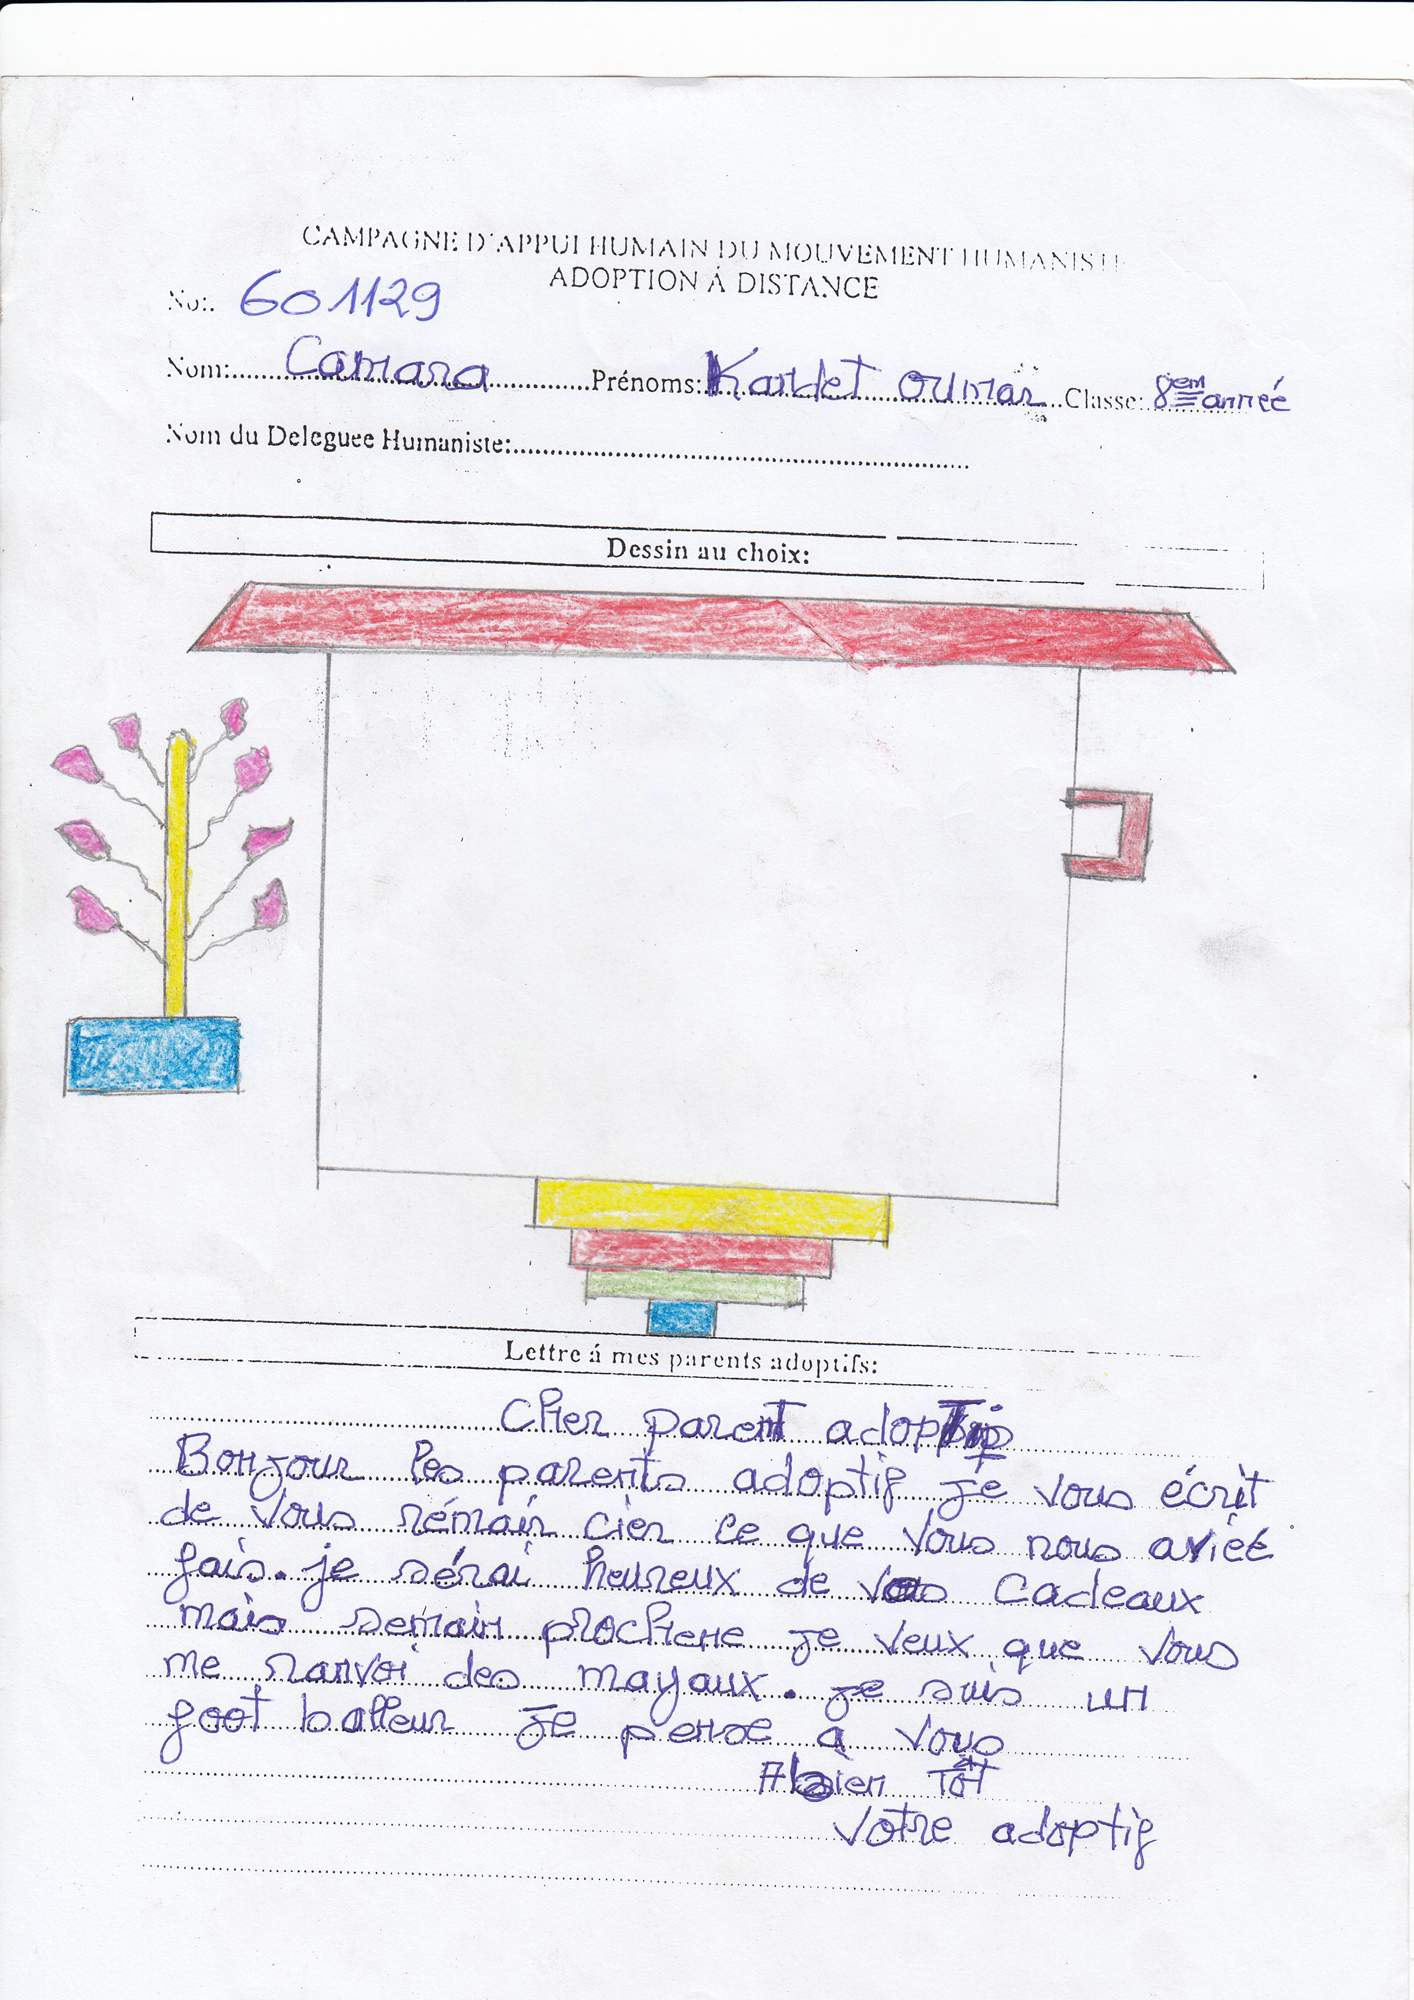 CAMPAGNE D'APPUI HUMAIN DU MOUVEMENT HUMANISTE
ADOPTION Á DISTANCE
No:. 601129
Nom: Camara Prénoms: Kandet oumar Classe: 8em anneé
Nom du Deleguee Humaniste:
Dessin au choix:
Lettre á mes parents adoptifs:
Cher parent adoptif
Bonjour les parents adoptif je vous écrit
de vous rémain cier ce que vous nous aviéé
fais. je sérai heureux de vos cadeaux
mais semain prochene je veux que vous
me ranvoi des mayaux. je suis un
foot balleur je pense a vous
A bien Tôt
votre adoptif